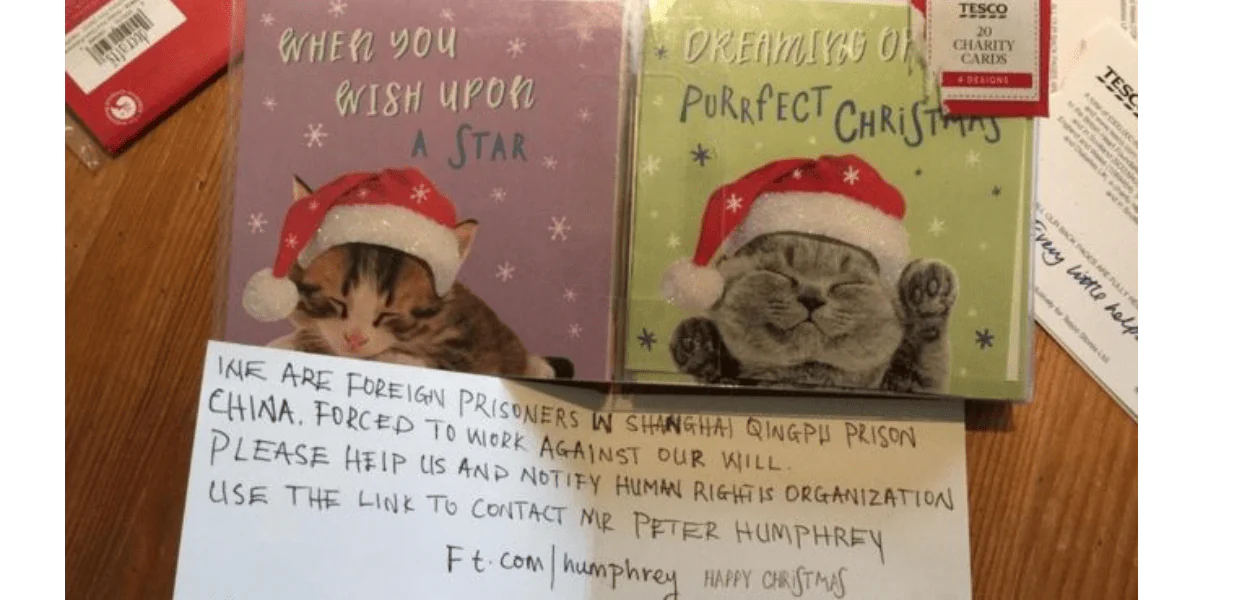 WHEN YOU
WISH UPON
A STAR
DREAMING OF
PURRFECT
CHRISTMAS
TESCO
20
CHARITY
CARDS
4 DESIGNS
TESC
Every little help
WE ARE FOREIGN PRISONERS IN SHANGHAI QINGPU PRISON
CHINA. FORCED TO WORK AGAINST OUR WILL.
PLEASE HELP US AND NOTIFY HUMAN RIGHTS ORGANIZATION
USE THE LINK TO CONTACT MR PETER HUMPHREY
Ft.com/humphrey HAPPY CHRISTMAS